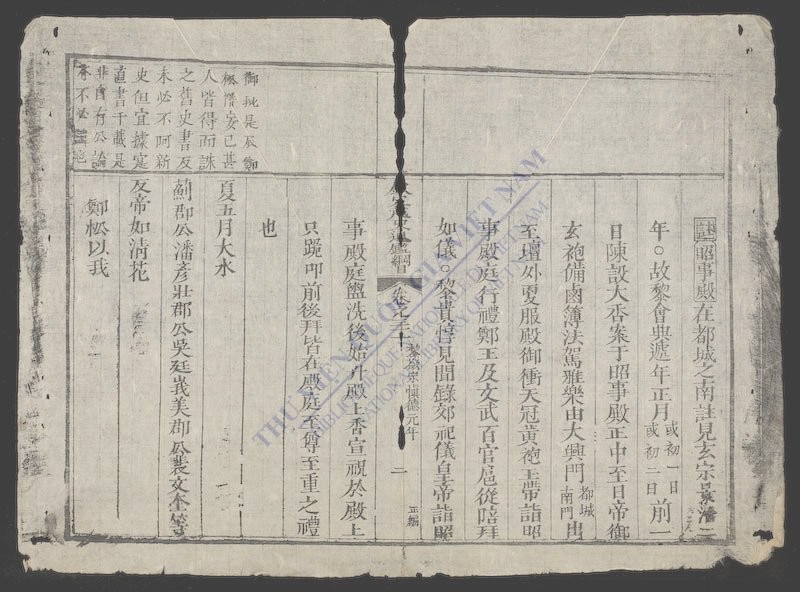 註昭事殿在都城之南註見玄宗景治二
年○故黎會典遞年正月或初一日或初二日前一
日陳設大香案于昭事殿正中至日帝御
玄袍備鹵簿法駕雅樂由大興門都城南門出
至壇外更服殿御衝天冠黃袍玉帶詣昭
事殿庭行禮鄭王及文武百官扈從陪拜
如儀○黎貴惇見聞錄郊祀儀皇帝詣昭
史通鑑綱目卷之三十 黎嚴宗愼德元年 二 正編
事殿庭盥洗後始升殿上香宣祝於殿上
只跪叩前後拜皆在殿庭至尊至重之禮
也
御批是辰鄭
松僭妄已甚
人皆得而誅
之舊史書反
未必不阿新
史但宜據寔
直書千載是
非自有公論
不必
夏五月大水
薊郡公潘彥壯郡公吳廷峩美郡公裴文奎等
反帝如淸花
鄭松以我
THƯ VIỆN QUỐC GIA VIỆT NAM
BIBLIOTHEQUE NATIONALE DU VIETNAM
NATIONAL LIBRARY OF VIETNAM